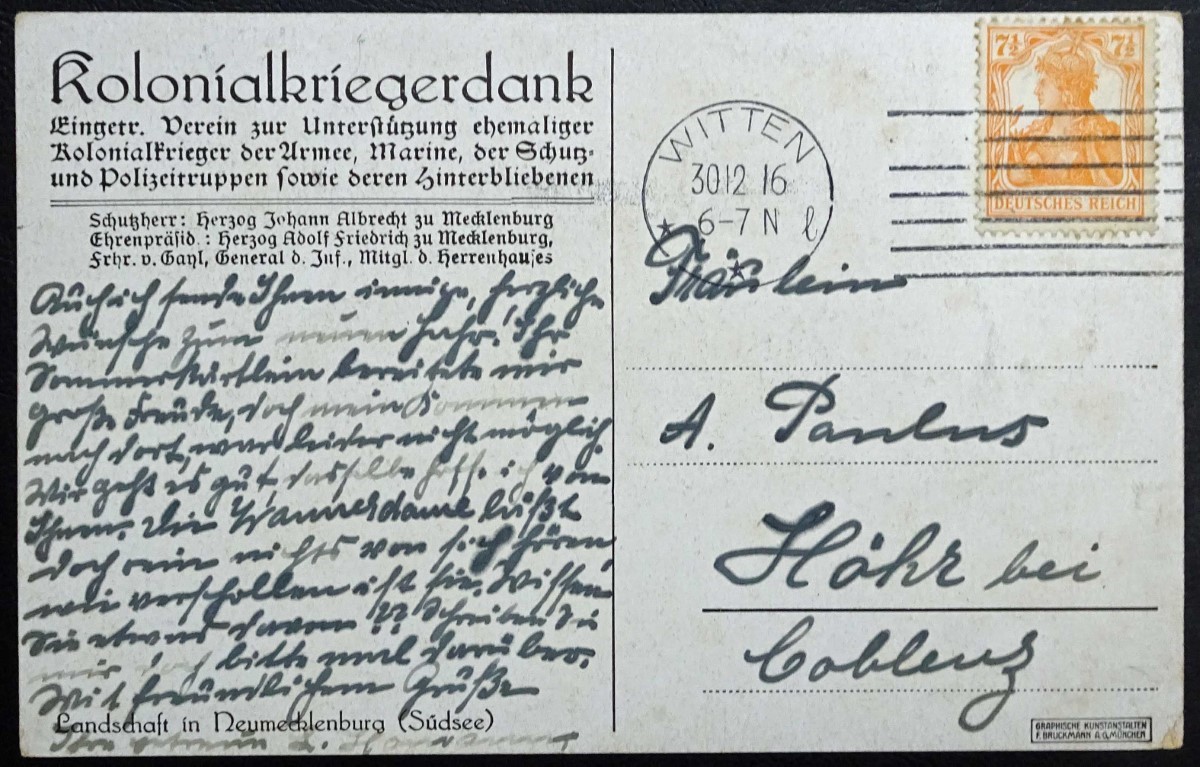 Kolonialkriegerdank
Eingetr. Verein zur Unterstützung ehemaliger
Kolonialkrieger der Armee, Marine, der Schutz-
und Polizeitruppen sowie deren Hinterbliebenen
Schutzherr: Herzog Johann Albrecht zu Mecklenburg
Ehrenpräsid.: Herzog Adolf Friedrich zu Mecklenburg,
Frhr. v. Gayl, General d. Inf., Mitgl. d. Herrenhauses
Auch ich sende Ihnen innige, herzliche
Wünsche zum neuen Jahr. Ihr
bereitete mir
große Freude, doch mein Kommen
nach dort, war leider nicht möglich.
Mir geht es gut, dasselbe hoffe ich von
Ihnen. Die läßt
doch rein nichts von sich hören,
wie verschollen ist sie. Wissen
Sie etwas davon?? Schreiben Sie
mir doch bitte mal darüber.
Mit freundlichem Gruße
Landschaft in Neumecklenburg (Südsee)
WITTEN
30 12 16
6-7 N
7½ 7½
DEUTSCHES REICH
Fräulein
A. Paulus
Höhr bei
Coblenz
GRAPHISCHE KUNSTANSTALTEN
F. BRUCKMANN A.G. MÜNCHEN